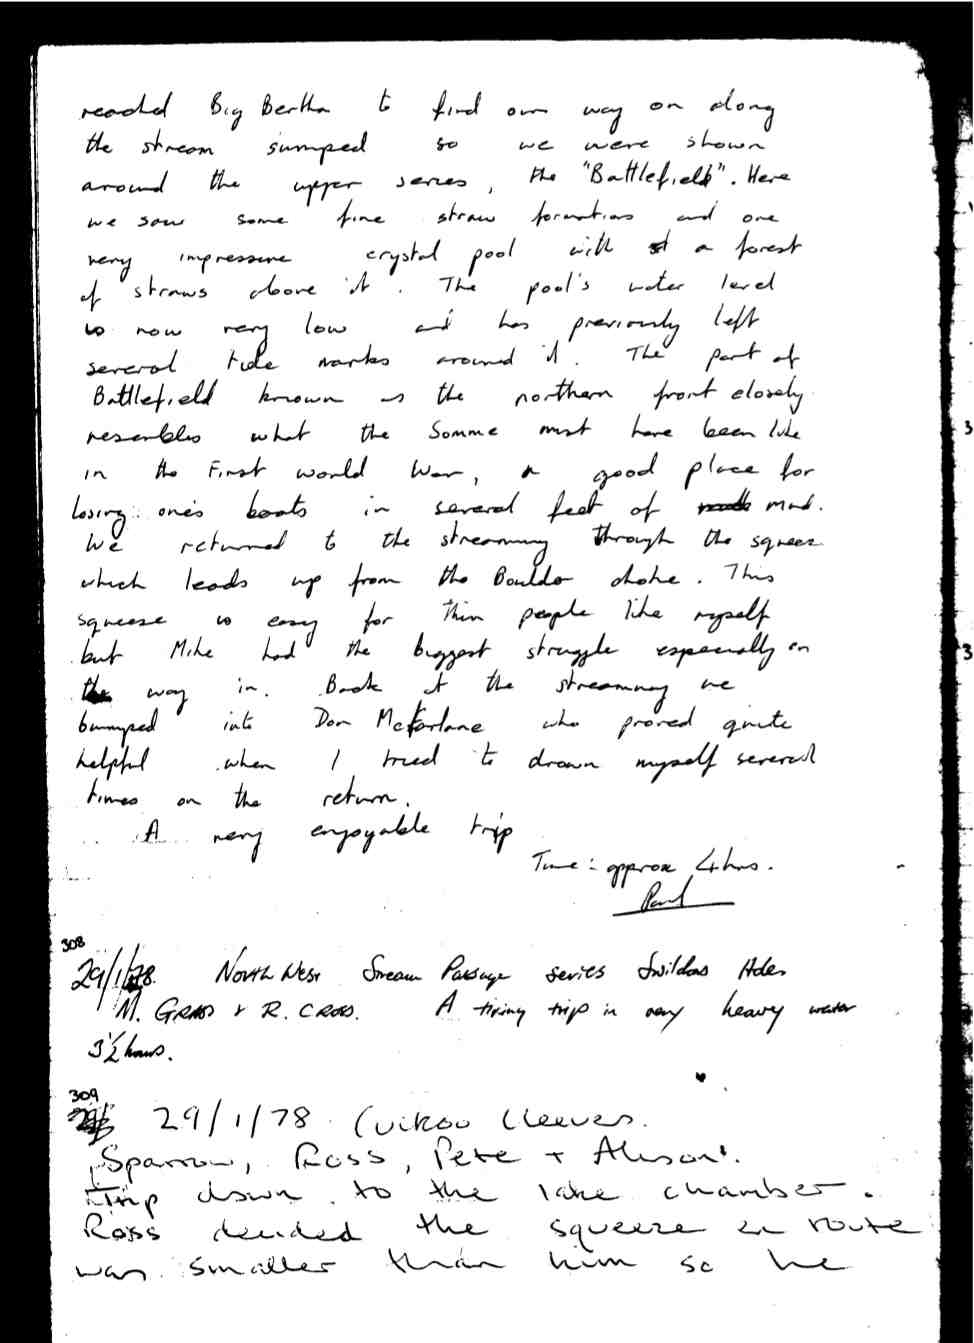 reached Big Bertha to find our way on along
the stream sumped so we were shown
around the upper series, the "Battlefield". Here
we saw some fine straw formations and one
very impressive crystal pool with a forest
of straws above it. The pool's water level
is now very low and has previously left
several tide marks around it. The part of
Battlefield known as the northern front closely
resembles what the Somme must have been like
in the First world War, a good place for
losing one's boots in several feet of mud.
We returned to the streamway through the squeeze
which leads up from the Boulder choke. This
squeeze is easy for thin people like myself
but Mike had the biggest struggle especially on
the way in. Back at the streamway we
bumped into Don McFarlane who proved quite
helpful when I tried to drown myself several
times on the return.
A very enjoyable trip
Time: approx 4 hrs.
Paul
308
29/1/78. North West Stream Passage series Swildons Hole
M. GRASS + R. CROSS. A tiring trip in very heavy water
3 1/2 hours.
309
29/1/78 Cuikoo Cleeves.
Sparrow, Ross, Pete + Alison.
Trip down to the lake chamber.
Ross decided the squeeze en route
was smaller than him so he